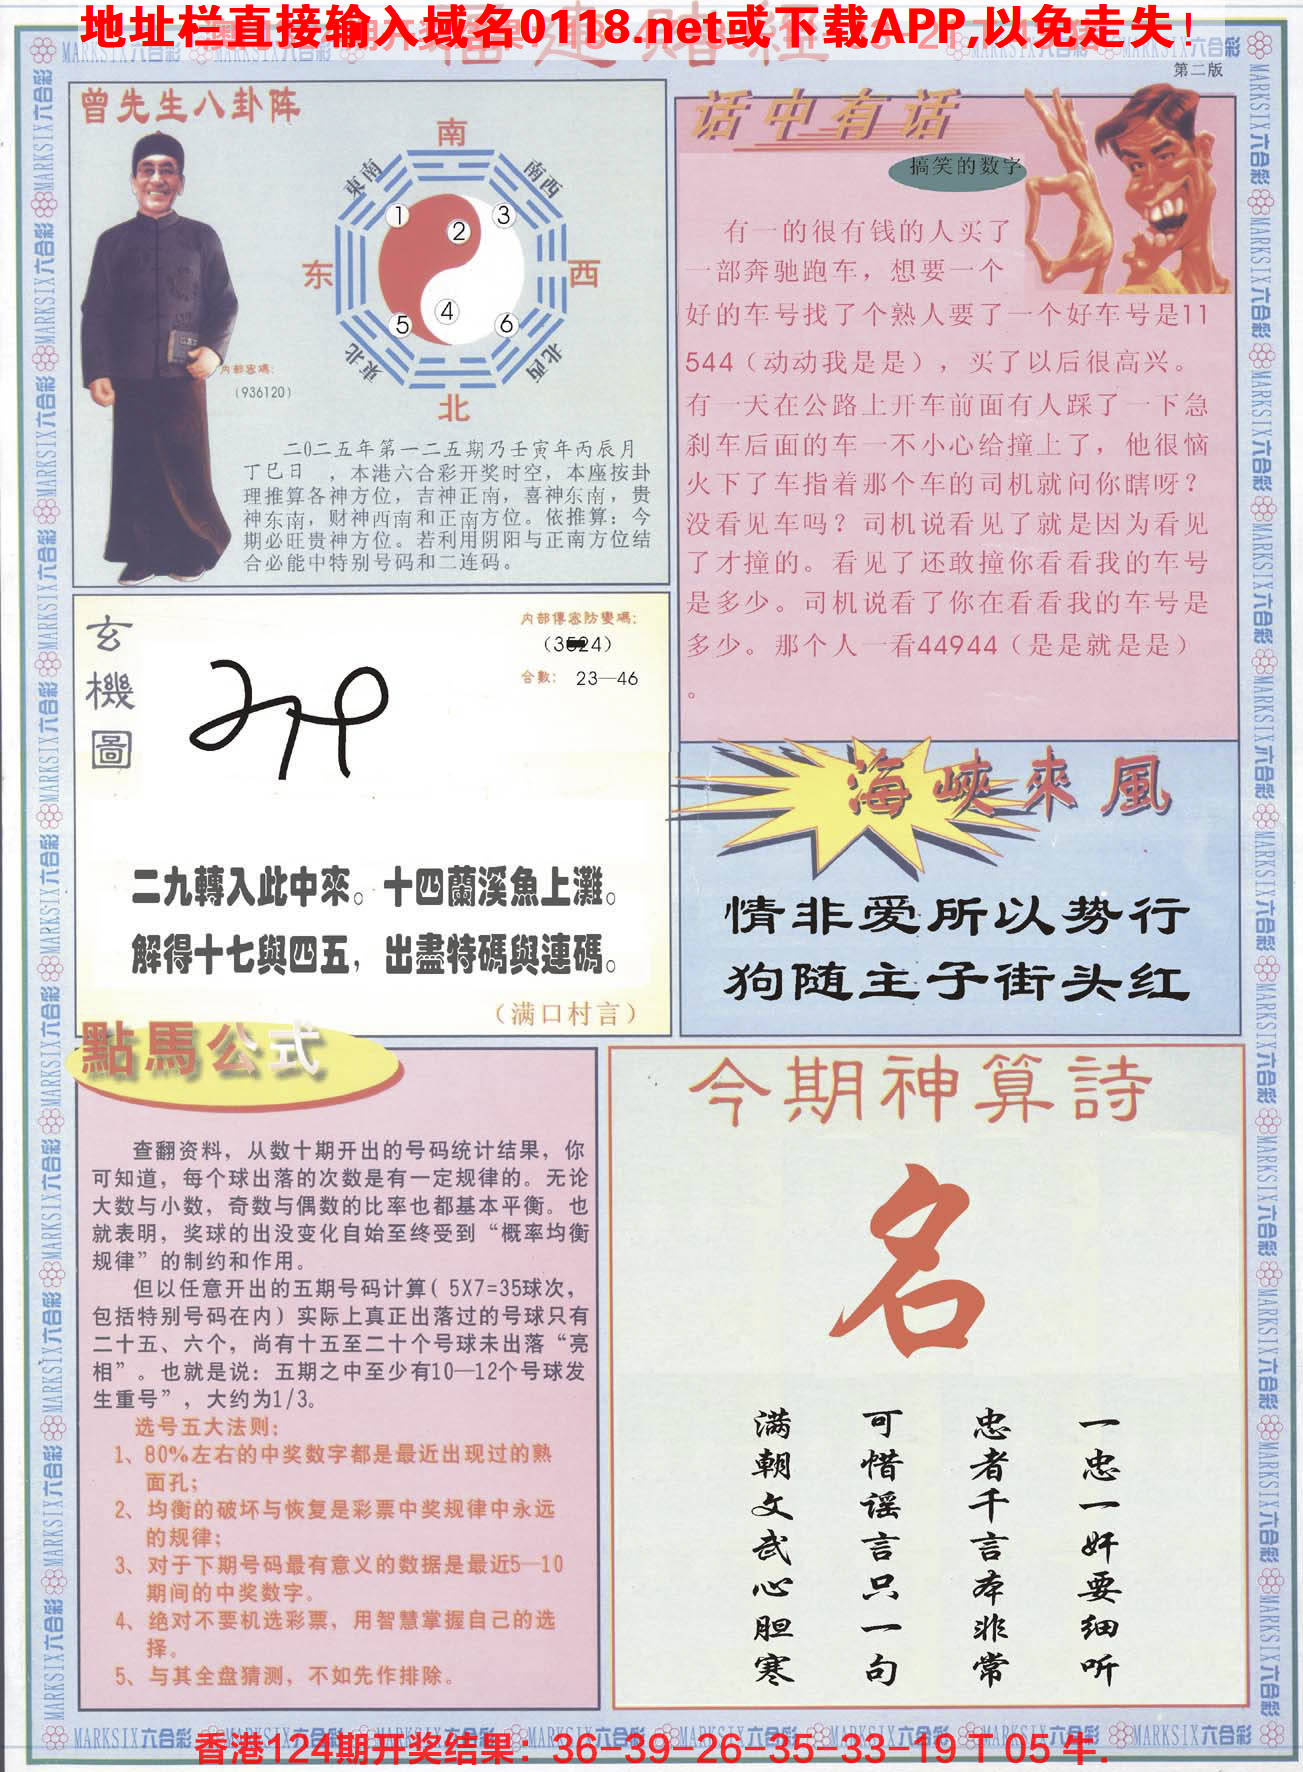 地址栏直接输入域名0118.net或下载APP,以免走失!
第二版
曾先生八卦阵
南
東南
南西
1
2
3
东
西
4
5
6
東北
北西
北
内部密碼:
(936120)
二0二五年第一二五期乃壬寅年丙辰月
丁巳日 ,本港六合彩开奖时空,本座按卦
理推算各神方位,吉神正南,喜神东南,贵
神东南,财神西南和正南方位。依推算:今
期必旺贵神方位。若利用阴阳与正南方位结
合必能中特别号码和二连码。
话中有话
搞笑的数字
有一的很有钱的人买了
一部奔驰跑车,想要一个
好的车号找了个熟人要了一个好车号是11
544(动动我是是),买了以后很高兴。
有一天在公路上开车前面有人踩了一下急
刹车后面的车一不小心给撞上了,他很恼
火下了车指着那个车的司机就问你瞎呀?
没看见车吗?司机说看见了就是因为看见
了才撞的。看见了还敢撞你看看我的车号
是多少。司机说看了你在看看我的车号是
多少。那个人一看44944(是是就是是)
。
玄機圖
内部傳密防變碼:
合數: 23—46
二九轉入此中來。十四蘭溪魚上灘。
解得十七與四五,出盡特碼與連碼。
(满口村言)
海峽來風
情非爱所以势行
狗随主子街头红
點馬公式
查翻资料,从数十期开出的号码统计结果,你
可知道,每个球出落的次数是有一定规律的。无论
大数与小数,奇数与偶数的比率也都基本平衡。也
就表明,奖球的出没变化自始至终受到“概率均衡
规律”的制约和作用。
但以任意开出的五期号码计算( 5X7=35球次,
包括特别号码在内)实际上真正出落过的号球只有
二十五、六个,尚有十五至二十个号球未出落“亮
相”。也就是说:五期之中至少有10—12个号球发
生重号”,大约为1/3。
选号五大法则:
1、80%左右的中奖数字都是最近出现过的熟
面孔;
2、均衡的破坏与恢复是彩票中奖规律中永远
的规律;
3、对于下期号码最有意义的数据是最近5—10
期间的中奖数字。
4、绝对不要机选彩票,用智慧掌握自己的选
择。
5、与其全盘猜测,不如先作排除。
今期神算詩
名
一忠一奸要细听
忠者千言本非常
可惜谣言只一句
满朝文武心胆寒
香港124期开奖结果:36-39-26-35-33-19 T 05 牛.